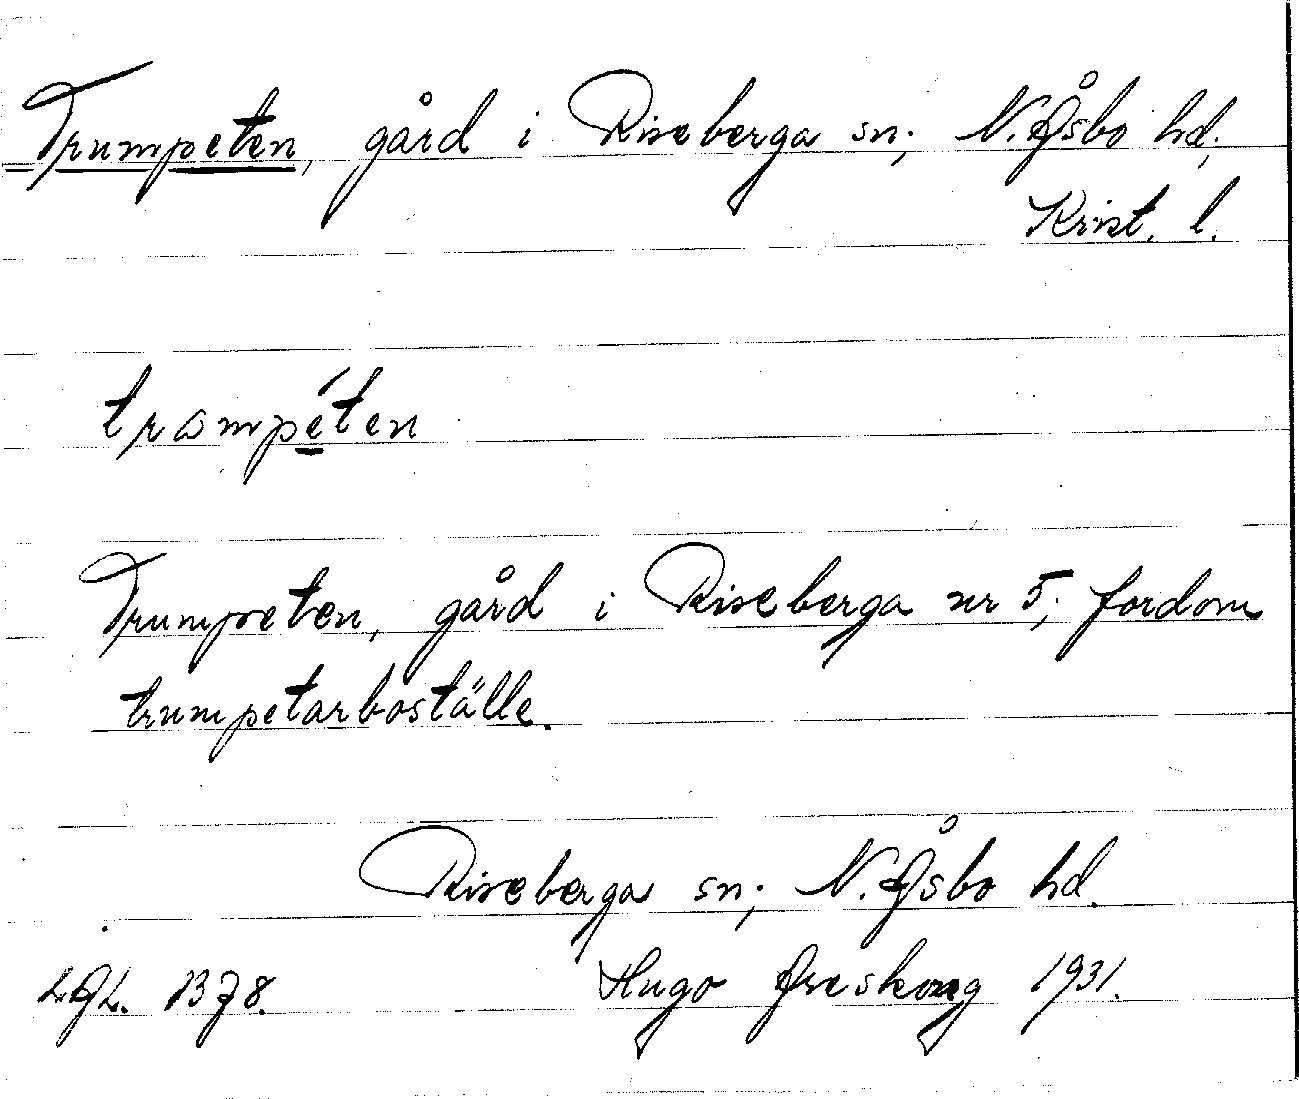 Trumpeten, gård i Riseberga sn; N. Åsbo hd;
Krist. l.
trɷmpéten
Trumpeten, gård i Riseberga nr 5; fordom
trumpetarboställe.
Riseberga sn; N. Åsbo hd.
Hugo Areskoug 1931.